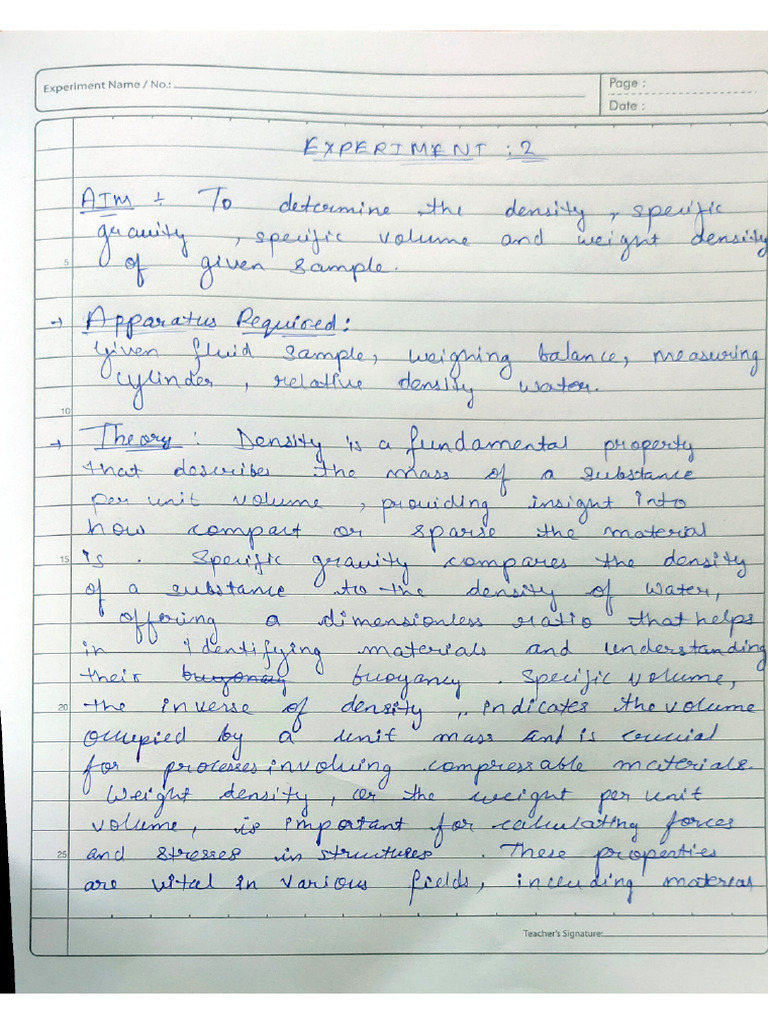 Experiment Name / No.:
Page :
Date :
EXPERIMENT : 2
AIM ÷ To determine the density, specific
gravity, specific volume and weight density
5
of given sample.
→ Apparatus Required:
Given fluid sample, weighing balance, measuring
cylinder, relative density water.
10
→ Theory: Density is a fundamental property
that describes the mass of a substance
per unit volume, providing insight into
how compact or sparse the material
15
is. Specific gravity compares the density
of a substance to the density of water,
offering a dimensionless ratio that helps
in identifying materials and understanding
their buoyancy. Specific volume,
20
the inverse of density, indicates the volume
occupied by a unit mass and is crucial
for processes involving compressable materials.
Weight density, or the weight per unit
volume, is important for calculating forces
25
and stresses in structures. These properties
are vital in various fields, including material
Teacher's Signature: